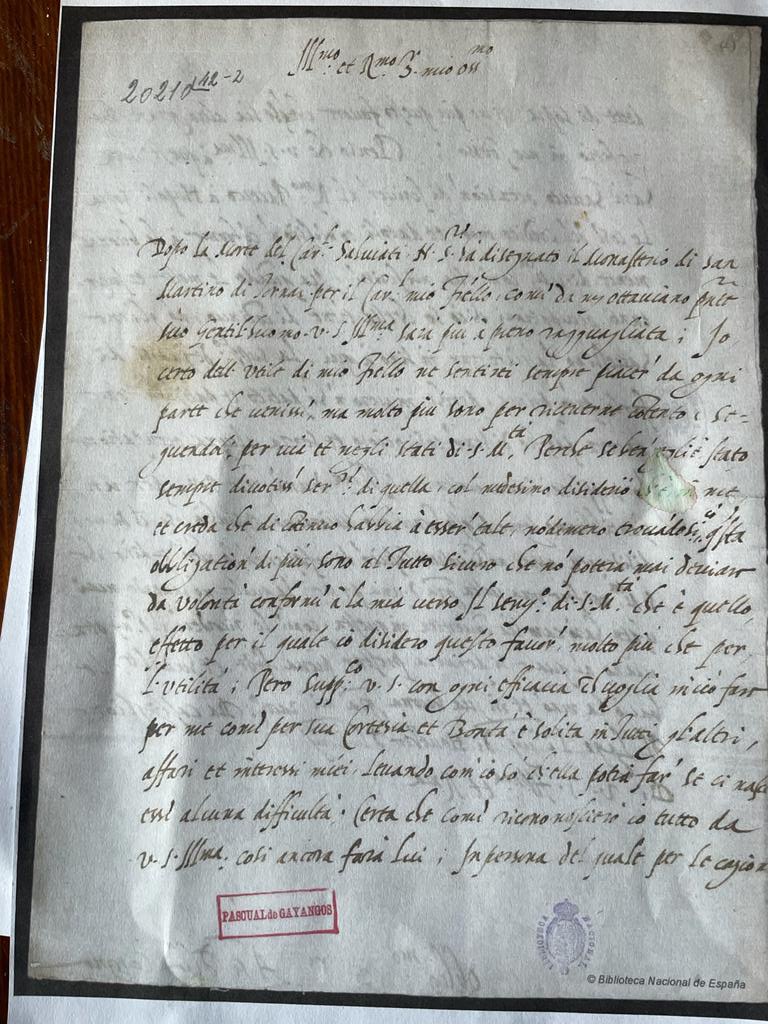 Ill.mo et R.mo S.r mio oss.mo
20210 42-2
Dopo la Morte del Car.l Salviati N. S.re ha disegnato il Monastrio di San
Martino di per il Car.l mio fr̃ello, come da ms ottaviano
suo gentilhuomo v. S. Ill.ma sara piu à pieno ragguagliata; Io
certo dell utile di mio fr̃ello ne sentirei sempre piacer' da ogni
parte che venissi, ma molto piu sono per riceverne cõtento se=
guendoli per via et negli stati di S. M.tà, Perche se ben egli è stato
sempre divotiss.o ser.re di quella, col medesimo disiderio me,
et creda che di cõtinuo habbia à esser' tale, nõdimeno
obligation' di piu, sono al Tutto sicuro che nõ poterà mai deviare
da volontà conforme à la mia verso il servg.o di S. M.tà che è quello
effetto per il quale io disidero questo favor' molto piu che per
l'utilità; Però supp.co v. S. con ogni efficacia voglia in ciò fare
per me come per sua Cortesia et Bontà è solita in Tutti gl altri,
affari et interessi miei, Levando com' io so ch'ella potrà far' se ci nasc
essi alcuna difficultà; Certa che come io tutto da
v. S. Ill.ma, cosi ancora farà Lui; In persona del quale per le
PASCUAL de GAYANGOS
BIBLIOTECA NACIONAL
© Biblioteca Nacional de España